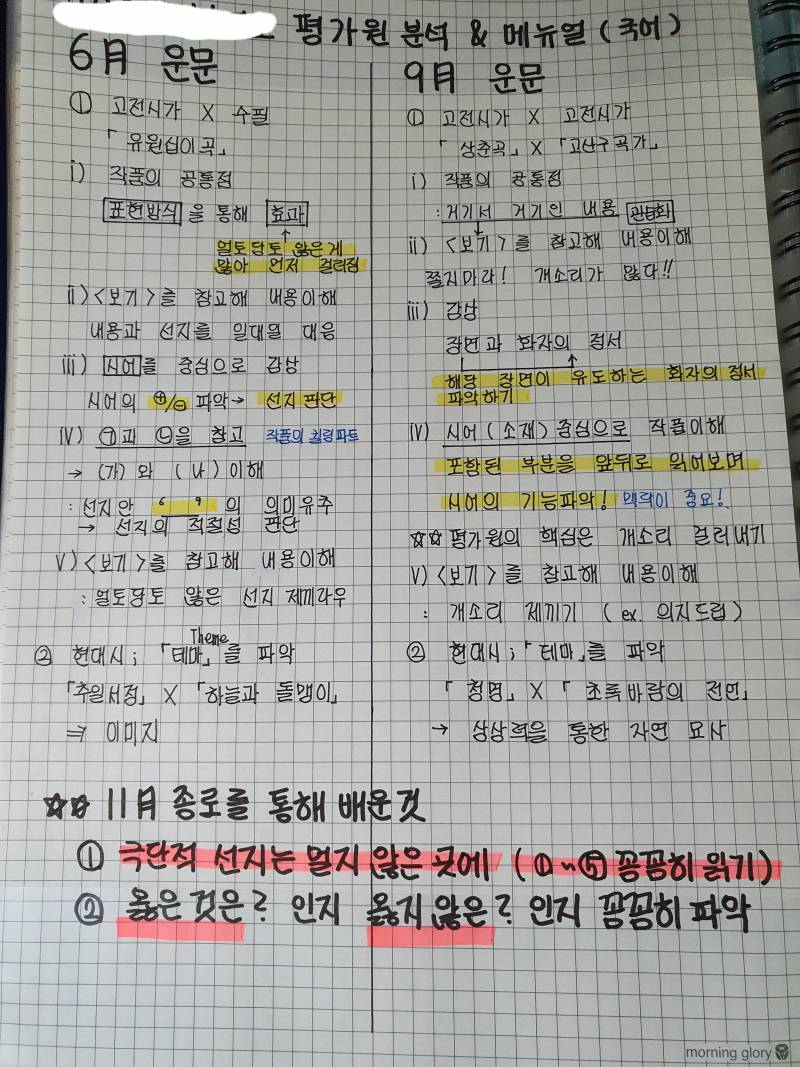 평가원 분석 & 메뉴얼 (국어)
6月 운문
① 고전시가 X 수필
「유원십이곡」
i) 작품의 공통점
표현방식 을 통해 효과
얼토당토 않은게
많아 먼저 걸러짐
ii) <보기>를 참고해 내용이해
내용과 선지를 일대일 대응
iii) 시어를 중심으로 감상
시어의 ⊕/⊖ 파악→ 선지판단
iv) ㉠과 ㉡을 참고 작품의 킬링파트
→ (가)와 (나) 이해
: 선지안 ‘ ’ 의 의미유추
→ 선지의 적절성 판단
v) <보기>를 참고해 내용이해
: 얼토당토 않은 선지 제끼라우
Theme
② 현대시; 「테마」를 파악
「추일서정」 X 「하늘과 돌멩이」
⇒ 이미지
9月 운문
① 고전시가 X 고전시가
「상춘곡」 X 「고산구곡가」
i) 작품의 공통점
: 거기서 거기인 내용
ii) <보기>를 참고해 내용이해
쫄지마라! 개소리가 많다!!
iii) 감상
장면과 화자의 정서
해당 장면이 유도하는 화자의 정서
파악하기
iv) 시어(소재)중심으로 작품이해
포함된 부분을 앞뒤로 읽어보며
시어의 기능파악! 맥락이 중요!
☆☆ 평가원의 핵심은 개소리 걸러내기
v) <보기>를 참고해 내용이해
: 개소리 제끼기 (ex. 의지드립)
② 현대시; 「테마」를 파악
「청명」 X 「초록바람의 전언」
→ 상상력을 통한 자연 묘사
☆☆ 11月 종로를 통해 배운것
① 극단적 선지는 멀지 않은 곳에 (①~⑤ 꼼꼼히 읽기)
② 옳은 것은? 인지 옳지 않은? 인지 꼼꼼히 파악
morning glory